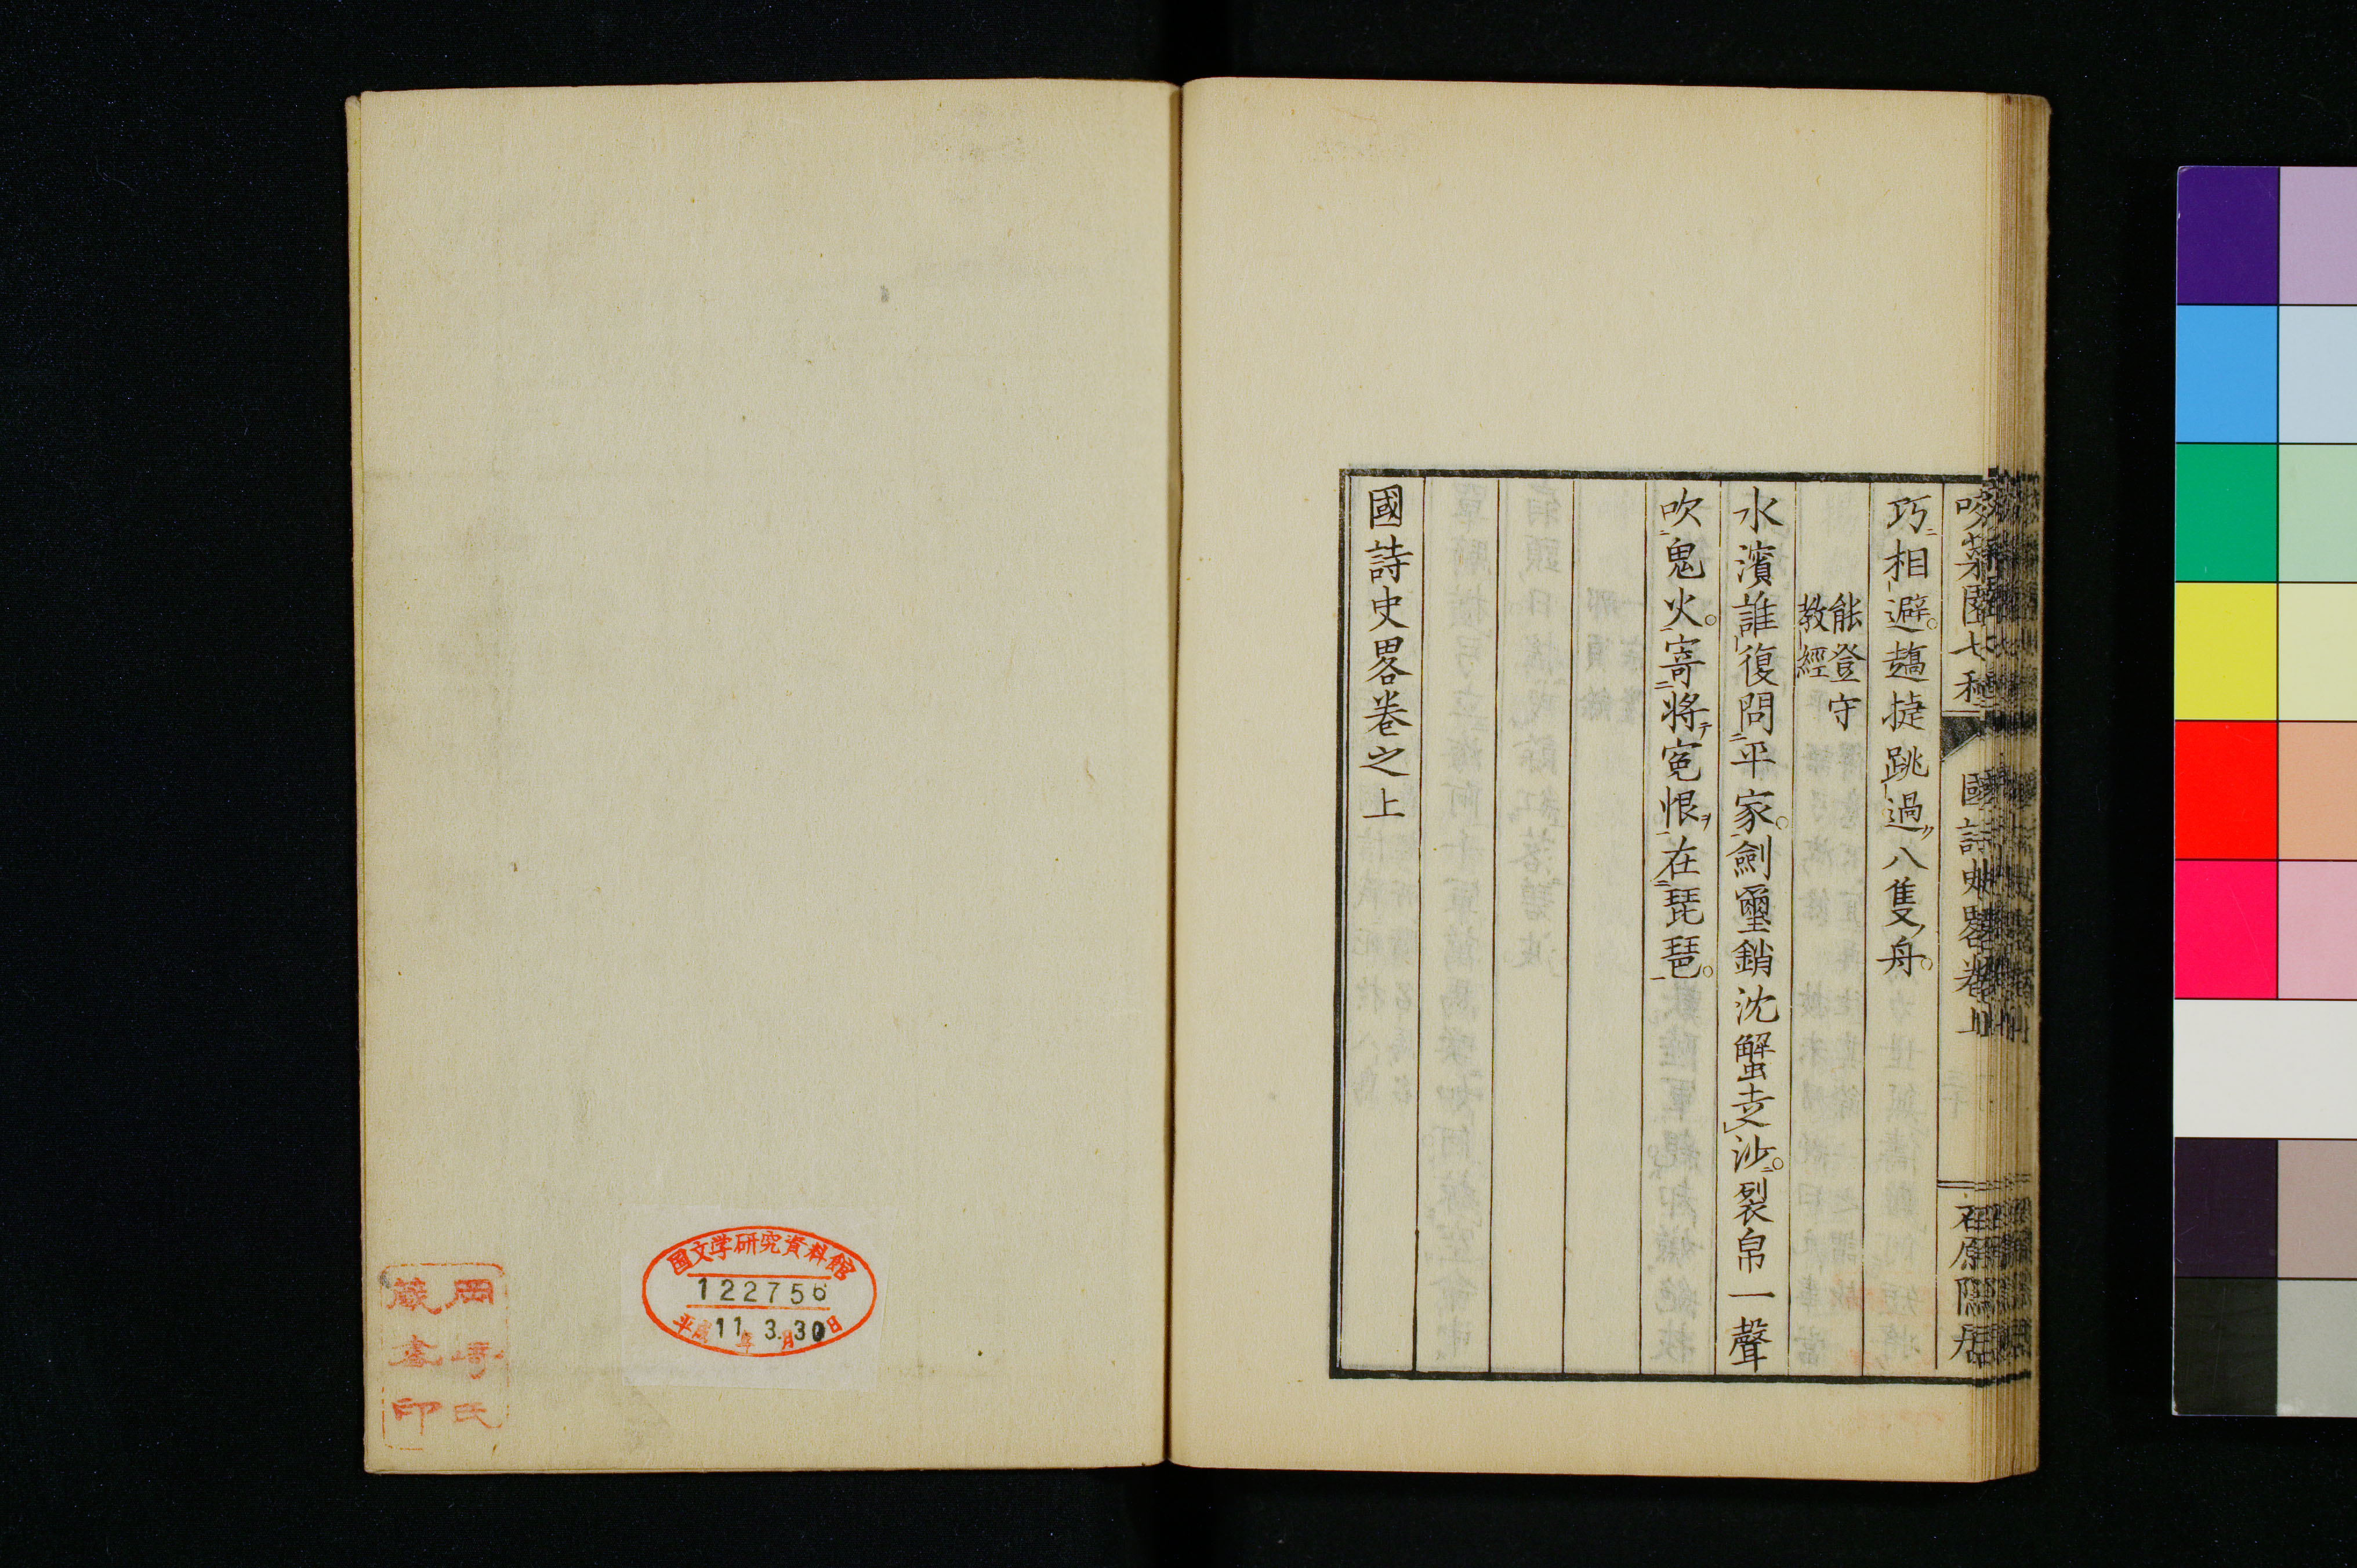 咬菜園七種 國詩史畧卷上 石原隱居
巧相避。趫捷跳過八隻舟。
能登守
教經
水濱誰復問平家。劍璽銷沈蟹走沙。裂帛一聲
吹鬼火。寄將冤恨在琵琶。
國詩史畧卷之上
国文学研究資料館
122756
平成11年3月30日
岡㟢氏
蔵書印